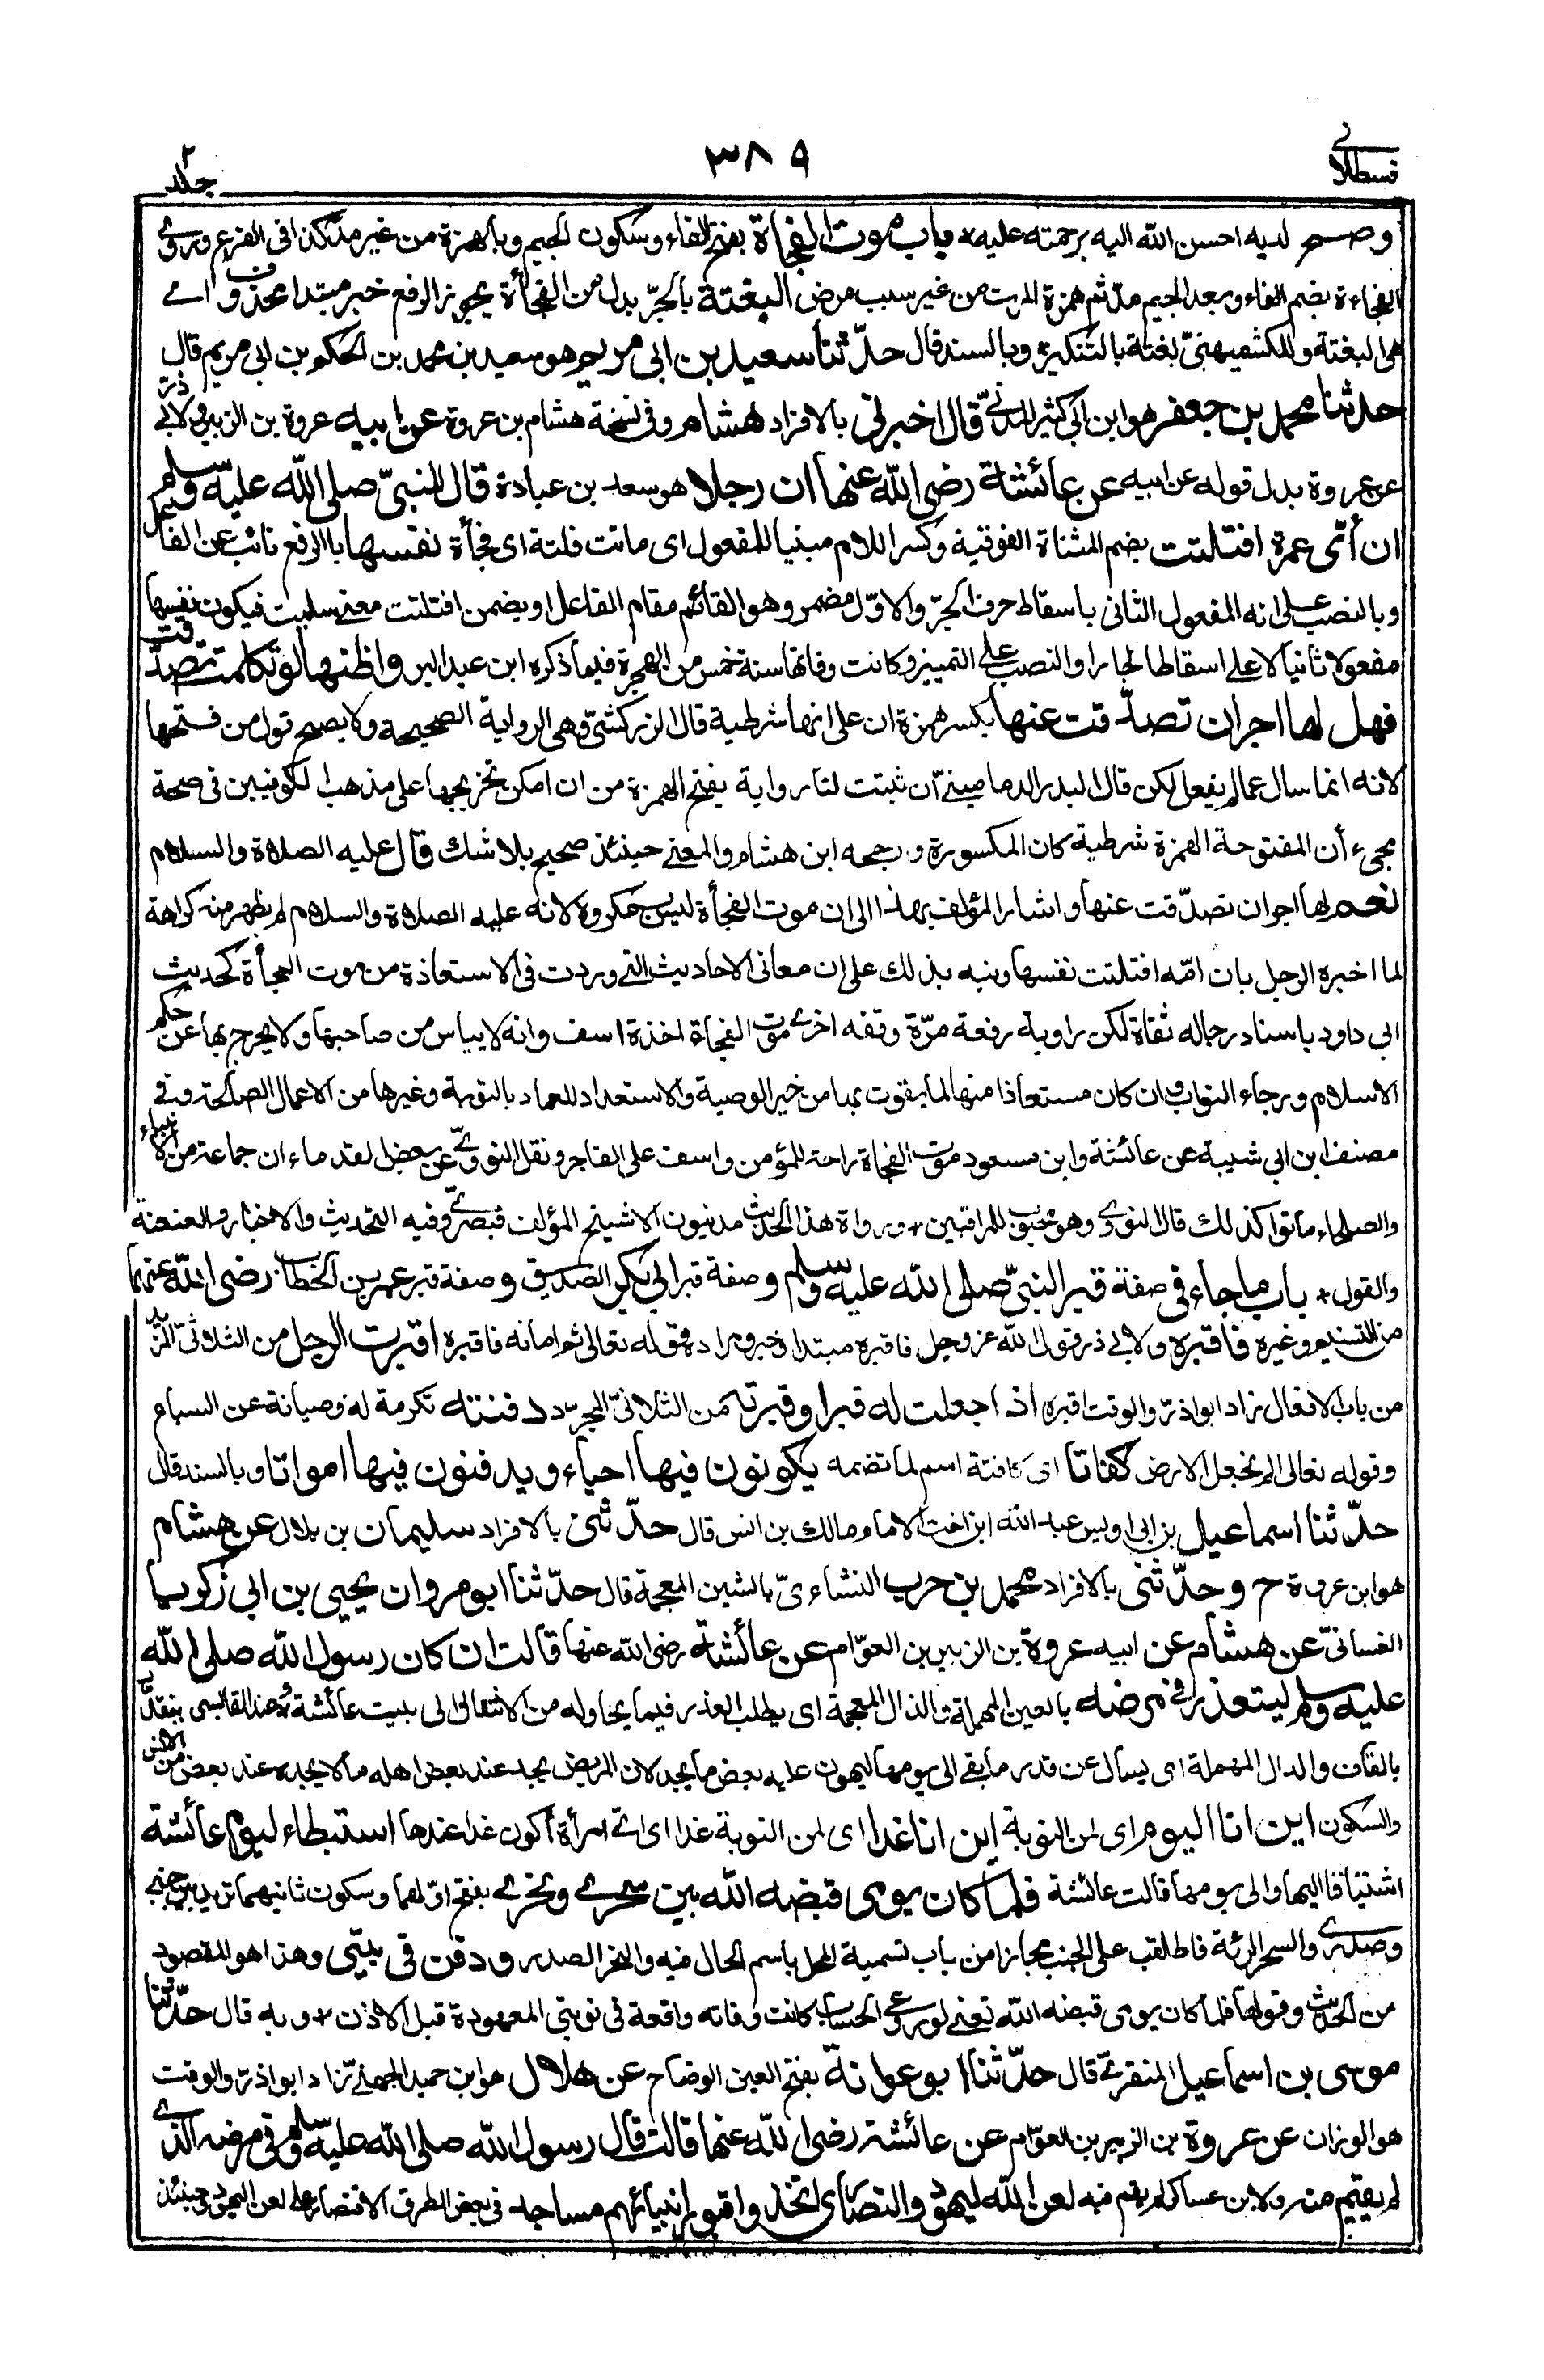 قسطلانی
٣٨٩
جلد ٢
وصــر لديه احسن الله اليه برحمته عليه * باب موت الفجأة بفتح الفاء وسكون الجيم وبالهمزة من غير مد كذا فى الفرع وروى
الفجاءة بضم الفاء وبعد الجيم مدّ ثم همزة الموت من غير سبب مرض البغتة بالجرّ بدل من الفجأة يجوز الرفع خبر مبتدا محذوف اے
هى البغتة وللكشميهنىّ بغتة بالتنكير * وبالسند قال حدّثنا سعيد بن ابى مريم هو سعيد بن محمد بن الحكم بن ابى مريم قال
حدثنا محمد بن جعفر هو ابن ابى كثير المدنىّ قال اخبرنى بالافراد هشام وفى نسخة هشام بن عروة عن ابيه عروة بن الزبير ولابى ذرّ
عن عروة بدل قوله عن ابيه عن عائشة رضى الله عنها ان رجلا هو سعد بن عبادة قال للنبىّ صلى الله عليه وسلم
ان أمّى عمرة افتلتت بضم المثناة الفوقية وكسر اللام مبنيا للمفعول اى ماتت فلتة اى فجأة نفسها بالرفع نائب عن الفاعل
وبالنصب على انه المفعول الثانى باسقاط حرف الجرّ والاوّل مضمر وهو القائم مقام الفاعل او يضمن افتلتت معنى سلبت فيكون نفسها
مفعولا ثانيا لا على اسقاط الجار او النصب على التمييز وكانت وفاتها سنة خمس من الهجرة فيما ذكره ابن عبد البر واظنها لو تكلمت تصدّقت
فهل لها اجر ان تصدّقت عنها بكسر همزة ان على انها شرطية قال الزركشىّ وهى الرواية الصحيحة ولا يصح قول من فتحها
لانه انما سال عما لم يفعل لكن قال البدر الدمامينىّ ان ثبتت لنا رواية بفتح الهمزة من ان امكن تخريجها على مذهب الكوفيين فى صحة
مجىء أن المفتوحة الهمزة شرطية كان المكسورة ورجحه ابن هشام والمعنى حينئذ صحيح بلا شك قال عليه الصلاة والسلام
نعم لها اجر ان تصدّقت عنها واشار المؤلف بهذا الى ان موت الفجأة ليس بمكروه لانه عليه الصلاة والسلام لم يظهر منه كراهة
لما اخبره الرجل بان امّه افتلتت نفسها ونبه بذلك على ان معانى الاحاديث التى وردت فى الاستعاذة من موت الفجأة كحديث
ابى داود باسناد رجاله ثقاة لكن راويه رفعه مرّة وقفه اخرى موت الفجاة اخذة اسف وانه لا ييأس من صاحبها ولا يخرج بها عن حكم
الاسلام ورجاء الثواب وان كان مستعاذا منها لما يفوت بها من خير الوصية والاستعداد للمعاد بالتوبة وغيرها من الاعمال الصالحة وفى
مصنف ابن ابى شيبة عن عائشة وابن مسعود موت الفجاة راحة للمؤمن واسف على الفاجر ونقل النووىّ عن بعض القدماء ان جماعة من الانبياء
والصلحاء ماتوا كذلك قال النووى وهو محبوب للمراقبين * ورواة هذا الحديث مدنيون الا شيخ المؤلف فبصرىّ وفيه التحديث والاخبار والعنعنة
والقول * باب ما جاء فى صفة قبر النبىّ صلى الله عليه وسلم وصفة قبر ابى بكر الصديق وصفة قبر عمر بن الخطاب رضى الله عنهما
من التسنيم وغيره فاقبره ولابى ذر قول الله عز وجل فاقبره مبتدا وخبر ومراده قوله تعالى ثم اماته فاقبره اقبرت الرجل من الثلاثىّ المزيد
من باب الافعال زاد ابو اذرّ والوقت اقبره اذا جعلت له قبرا وقبرته من الثلاثىّ المجرّد دفنته تكرمة له وصيانة عن السباع
وقوله تعالى الم نجعل الارض كفاتا اى كافتة اسم لما تضمه يكونون فيها احياء ويدفنون فيها امواتا وبالسند قال
حدّثنا اسماعيل بن ابى اويس عبد الله ابن اخت الامام مالك بن انس قال حدّثنى بالافراد سليمان بن بلال عن هشام
هو ابن عروة ح وحدّثنى بالافراد محمد بن حرب النشاءىّ بالشين المعجمة قال حدّثنا ابو مروان يحيى بن ابى زكريا
الغسانىّ عن هشام عن ابيه عروة بن الزبير بن العوّام عن عائشة رضى الله عنها قالت ان كان رسول الله صلى الله
عليه وسلم ليتعذر فى مرضه بالعين المهملة والذال المعجمة اى يطلب العذر فيما يحاوله من الانتقال الى بيت عائشة وعند القابسى يتقدّر
بالقاف والدال المهملة اى يسأل عن قدر ما بقى الى يومها ليهون عليه بعض ما يجد لان المريض يجد عند بعض اهله ما لا يجده عند بعض من الانس
والسكون اين انا اليوم اى لمن النوبة اين انا غدا اى لمن النوبة غدا اى اىّ امرأة أكون غدا عندها استبطاء ليوم عائشة
اشتياقا اليها والى يومها قالت عائشة فلما كان يومى قبضه الله بين سحرى ونحرى بفتح اوّلهما وسكون ثانيهما تريد بين جنبى
وصدرى والسحر الرئة فاطلقت على الجنب مجازا من باب تسمية المحل باسم الحال فيه والنحر الصدر ودفن فى بيتى وهذا هو المقصود
من الحديث وقولها فلما كان يومى قبضه الله تعنى لو روعى الحساب كانت وفاته واقعة فى نوبتى المعهودة قبل الاذن * وبه قال حدّثنا
موسى بن اسماعيل المنقرىّ قال حدّثنا ابو عوانة بفتح العين الوضاح عن هلال هو ابن حميد الجهنىّ زاد ابو اذرّ والوقت
هو الوزان عن عروة بن الزبير بن العوّام عن عائشة رضى الله عنها قالت قال رسول الله صلى الله عليه وسلم فى مرضه الذى
لم يقم منه ولابن عساكر لم يقم فيه لعن الله اليهود والنصارى اتخذوا قبور انبيائهم مساجد فى بعض الطرق الاقتصار على لعن اليهود وحينئذ